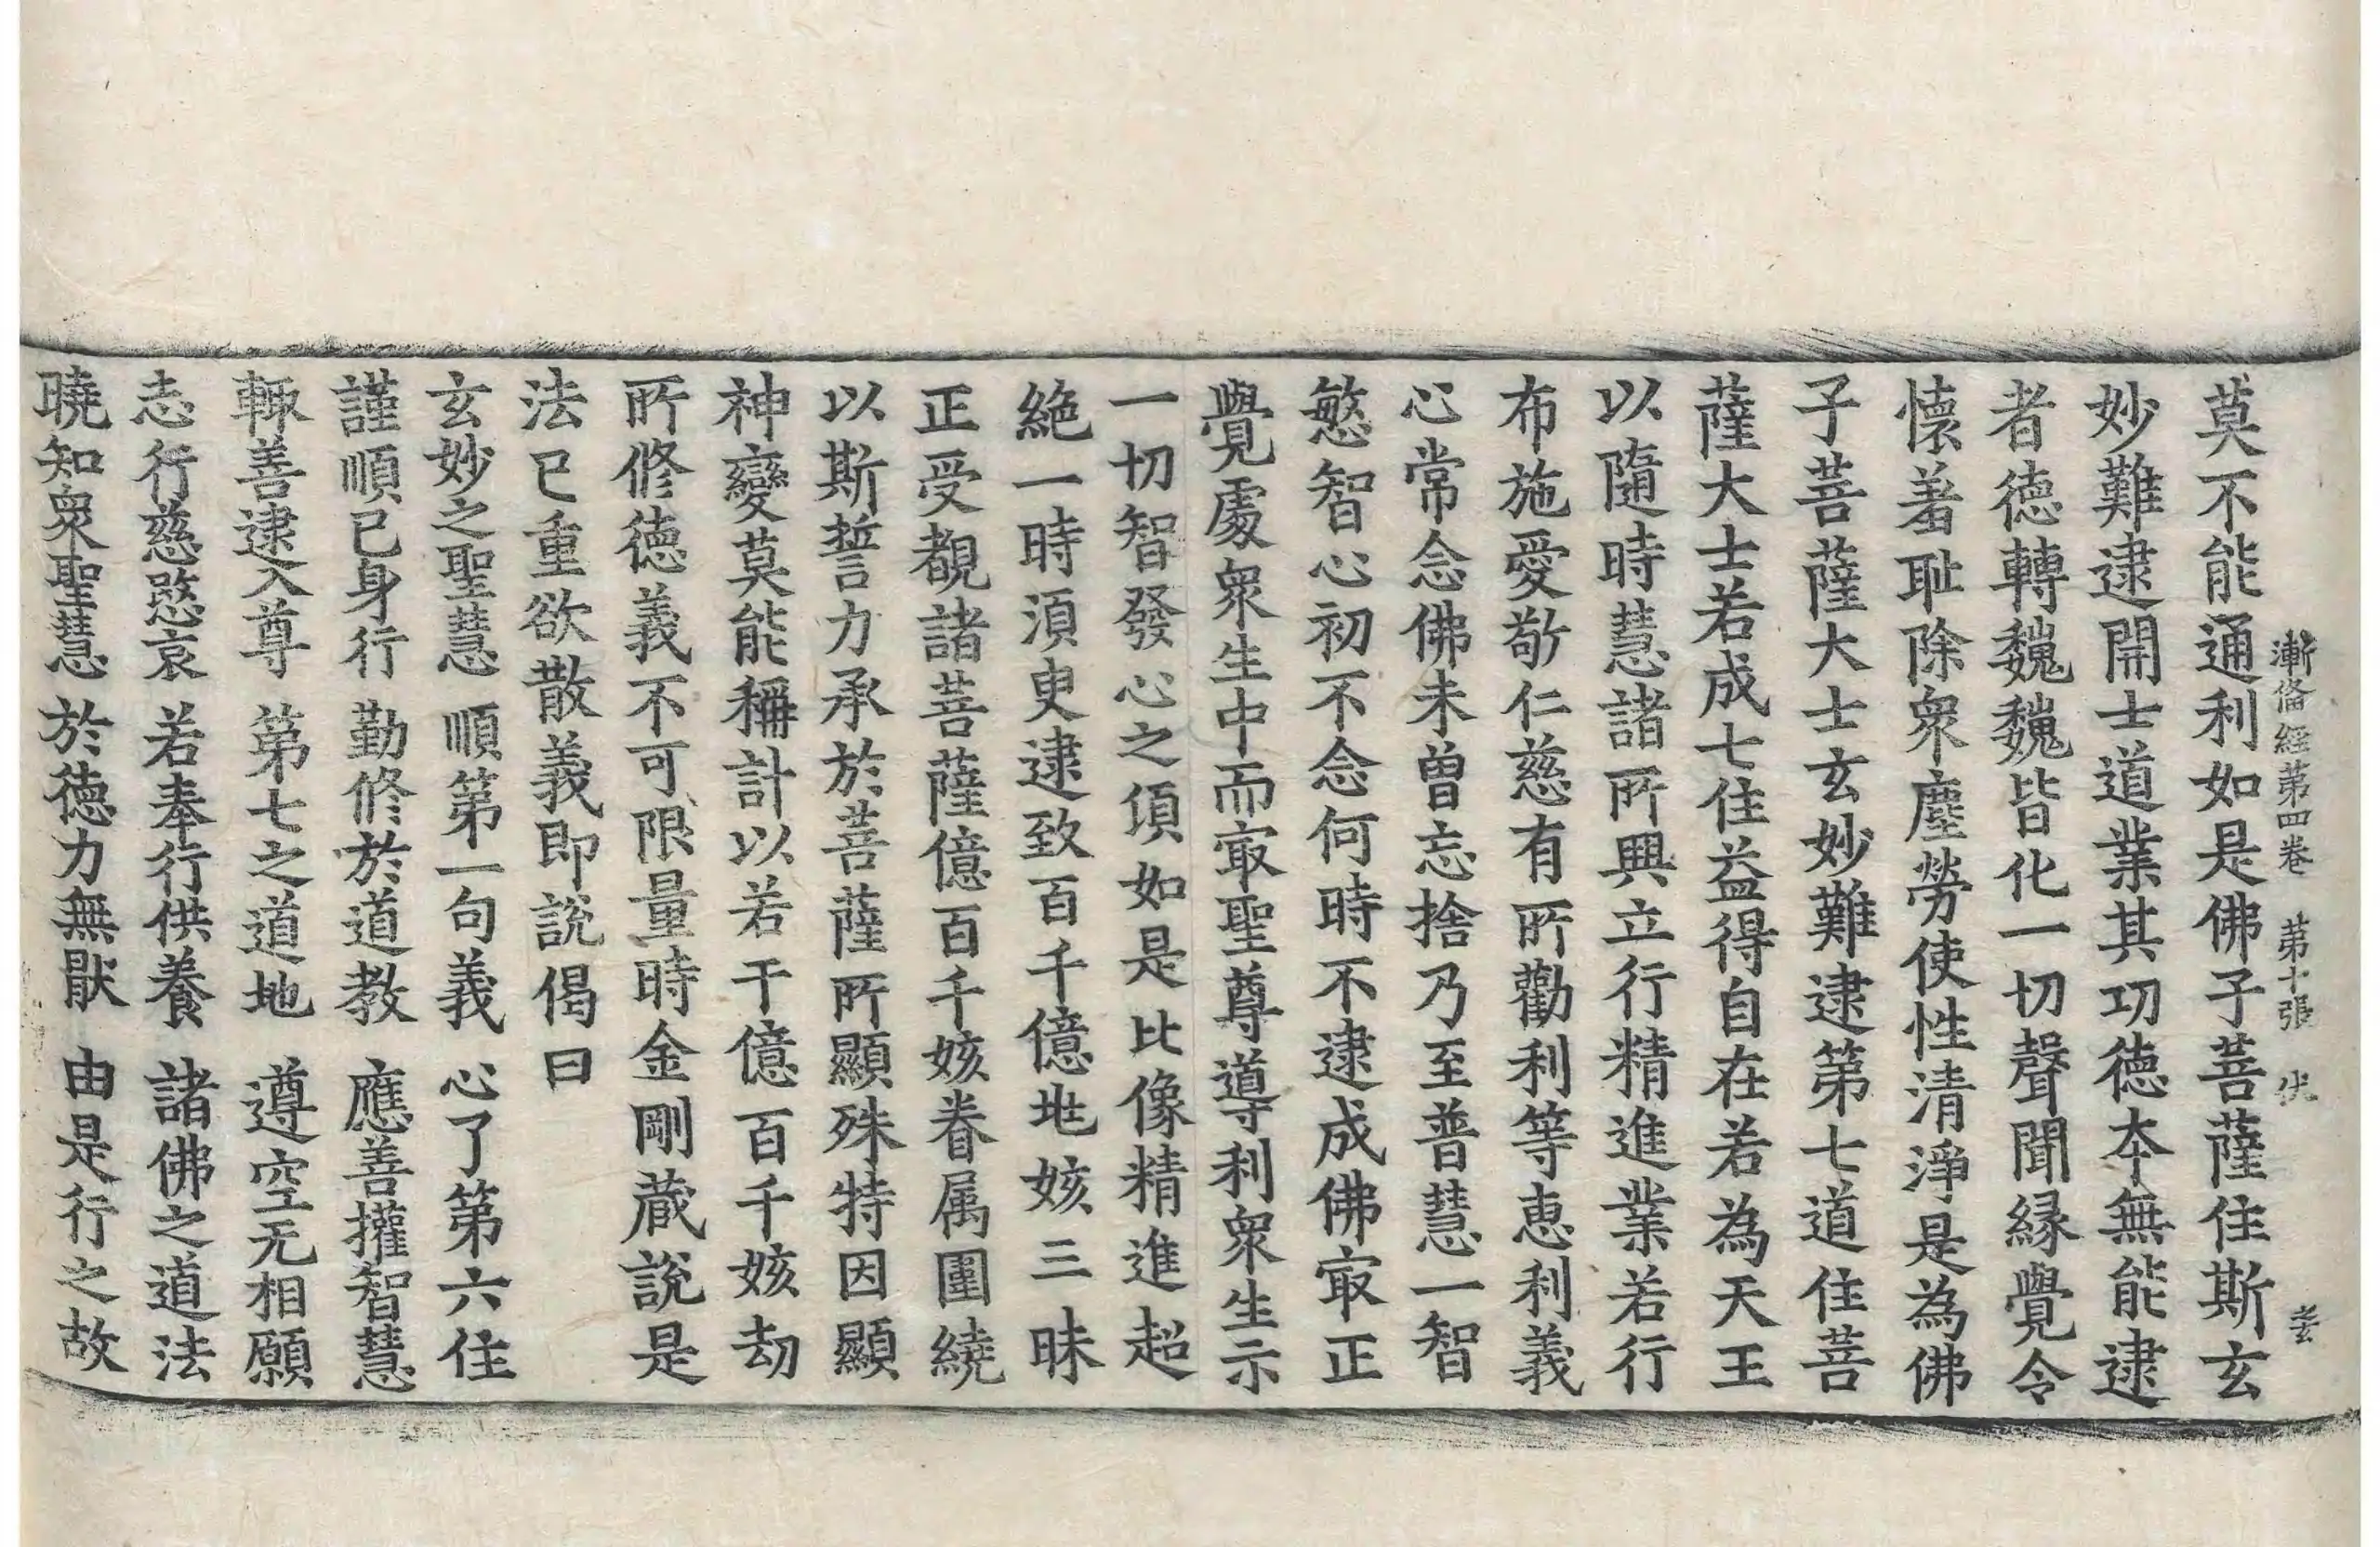 漸俻經第四卷　第十張　伏
莫不能通利如是佛子菩薩住斯玄
妙難逮開士道業其功德夲無能逮
者德轉巍巍皆化一切聲聞緣覺令
懷羞耻除衆塵勞使性清淨是為佛
子菩薩大士玄妙難逮第七道住菩
薩大士若成七住益得自在若為天王
以隨時慧諸所興立行精進業若行
布施愛敬仁慈有所勸利等恵利義
心常念佛未曽忘捨乃至普慧一智
慜智心初不念何時不逮成佛㝡正
覺處衆生中而㝡聖尊導利衆生示
一切智發心之頃如是比像精進超
絶一時湏臾逮致百千億㘴姟三昧
正受覩諸菩薩億百千姟眷属圍繞
以斯誓力承於菩薩所顯殊特因顯
神變莫能稱計以若干億百千姟劫
所修德義不可限量時金剛藏說是
法已重欲散義即說偈曰
玄妙之聖慧　順第一句義　心了第六住
謹順已身行　勤修於道教　應善權智慧
輙善逮入尊　第七之道地　遵空无相願
志行慈愍哀　若奉行供養　諸佛之道法
曉知衆聖慧　於德力無猒　由是行之故